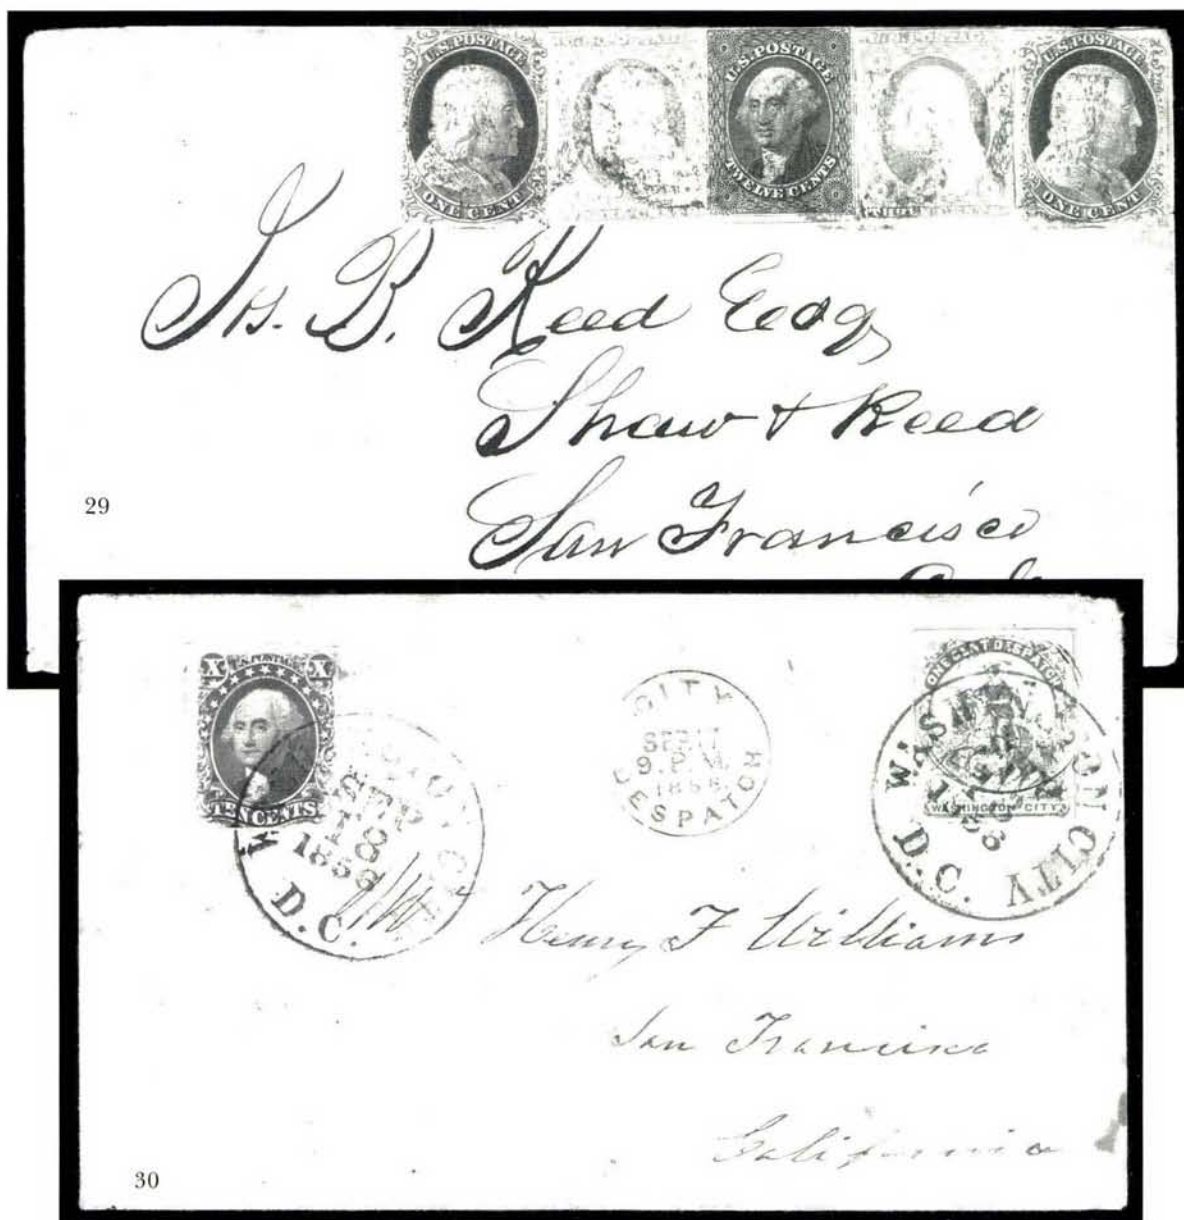 U.S. POSTAGE
ONE CENT
U.S. POSTAGE
TWELVE CENTS
U.S. POSTAGE
ONE CENT
Js. B. Reed Esq,
Shaw & Reed
San Francisco
29
X U.S. POSTAGE X
TEN CENTS
SEP
18
1856
D.C.
CITY
SEP 17
9. P.M.
1856
DESPATCH
ONE CENT DESPATCH
WASHINGTON CITY
WASHINGTON CITY
1856
D.C.
Henry F Williams
San Francisco
California
30